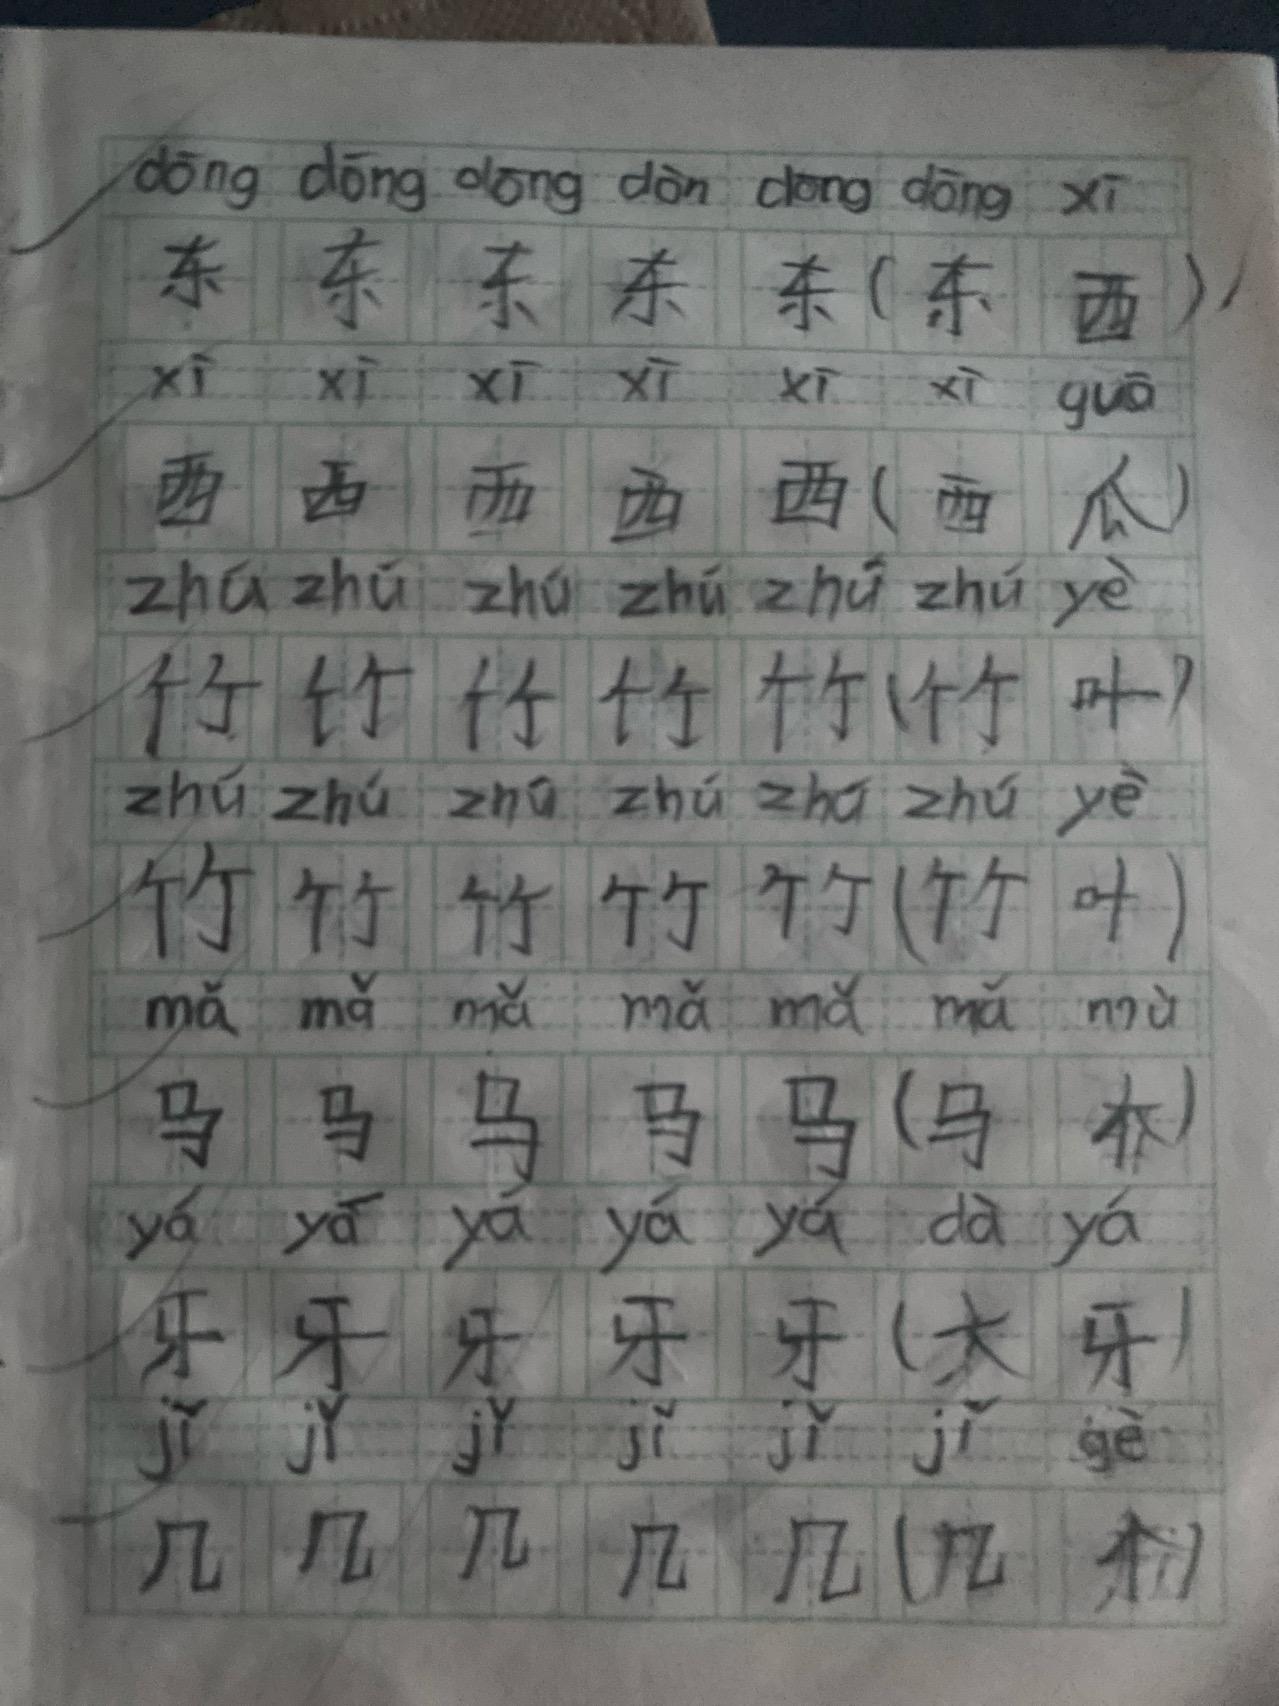 dōng dōng dōng dòn dōng dōng xī
东 东 东 东 东 (东 西)
xī xī xī xī xī xī guō
西 西 西 西 西 (西 瓜)
zhú zhú zhú zhú zhú zhú yè
竹 竹 竹 竹 竹 (竹 叶)
zhú zhú zhú zhú zhú zhú yè
竹 竹 竹 竹 竹 (竹 叶)
mǎ mǎ mǎ mǎ mǎ mǎ mù
马 马 马 马 马 (马 木)
yá yá yá yá yá dà yá
牙 牙 牙 牙 牙 (大 牙)
jǐ jǐ jǐ jǐ jǐ jǐ gè
几 几 几 几 几 (几